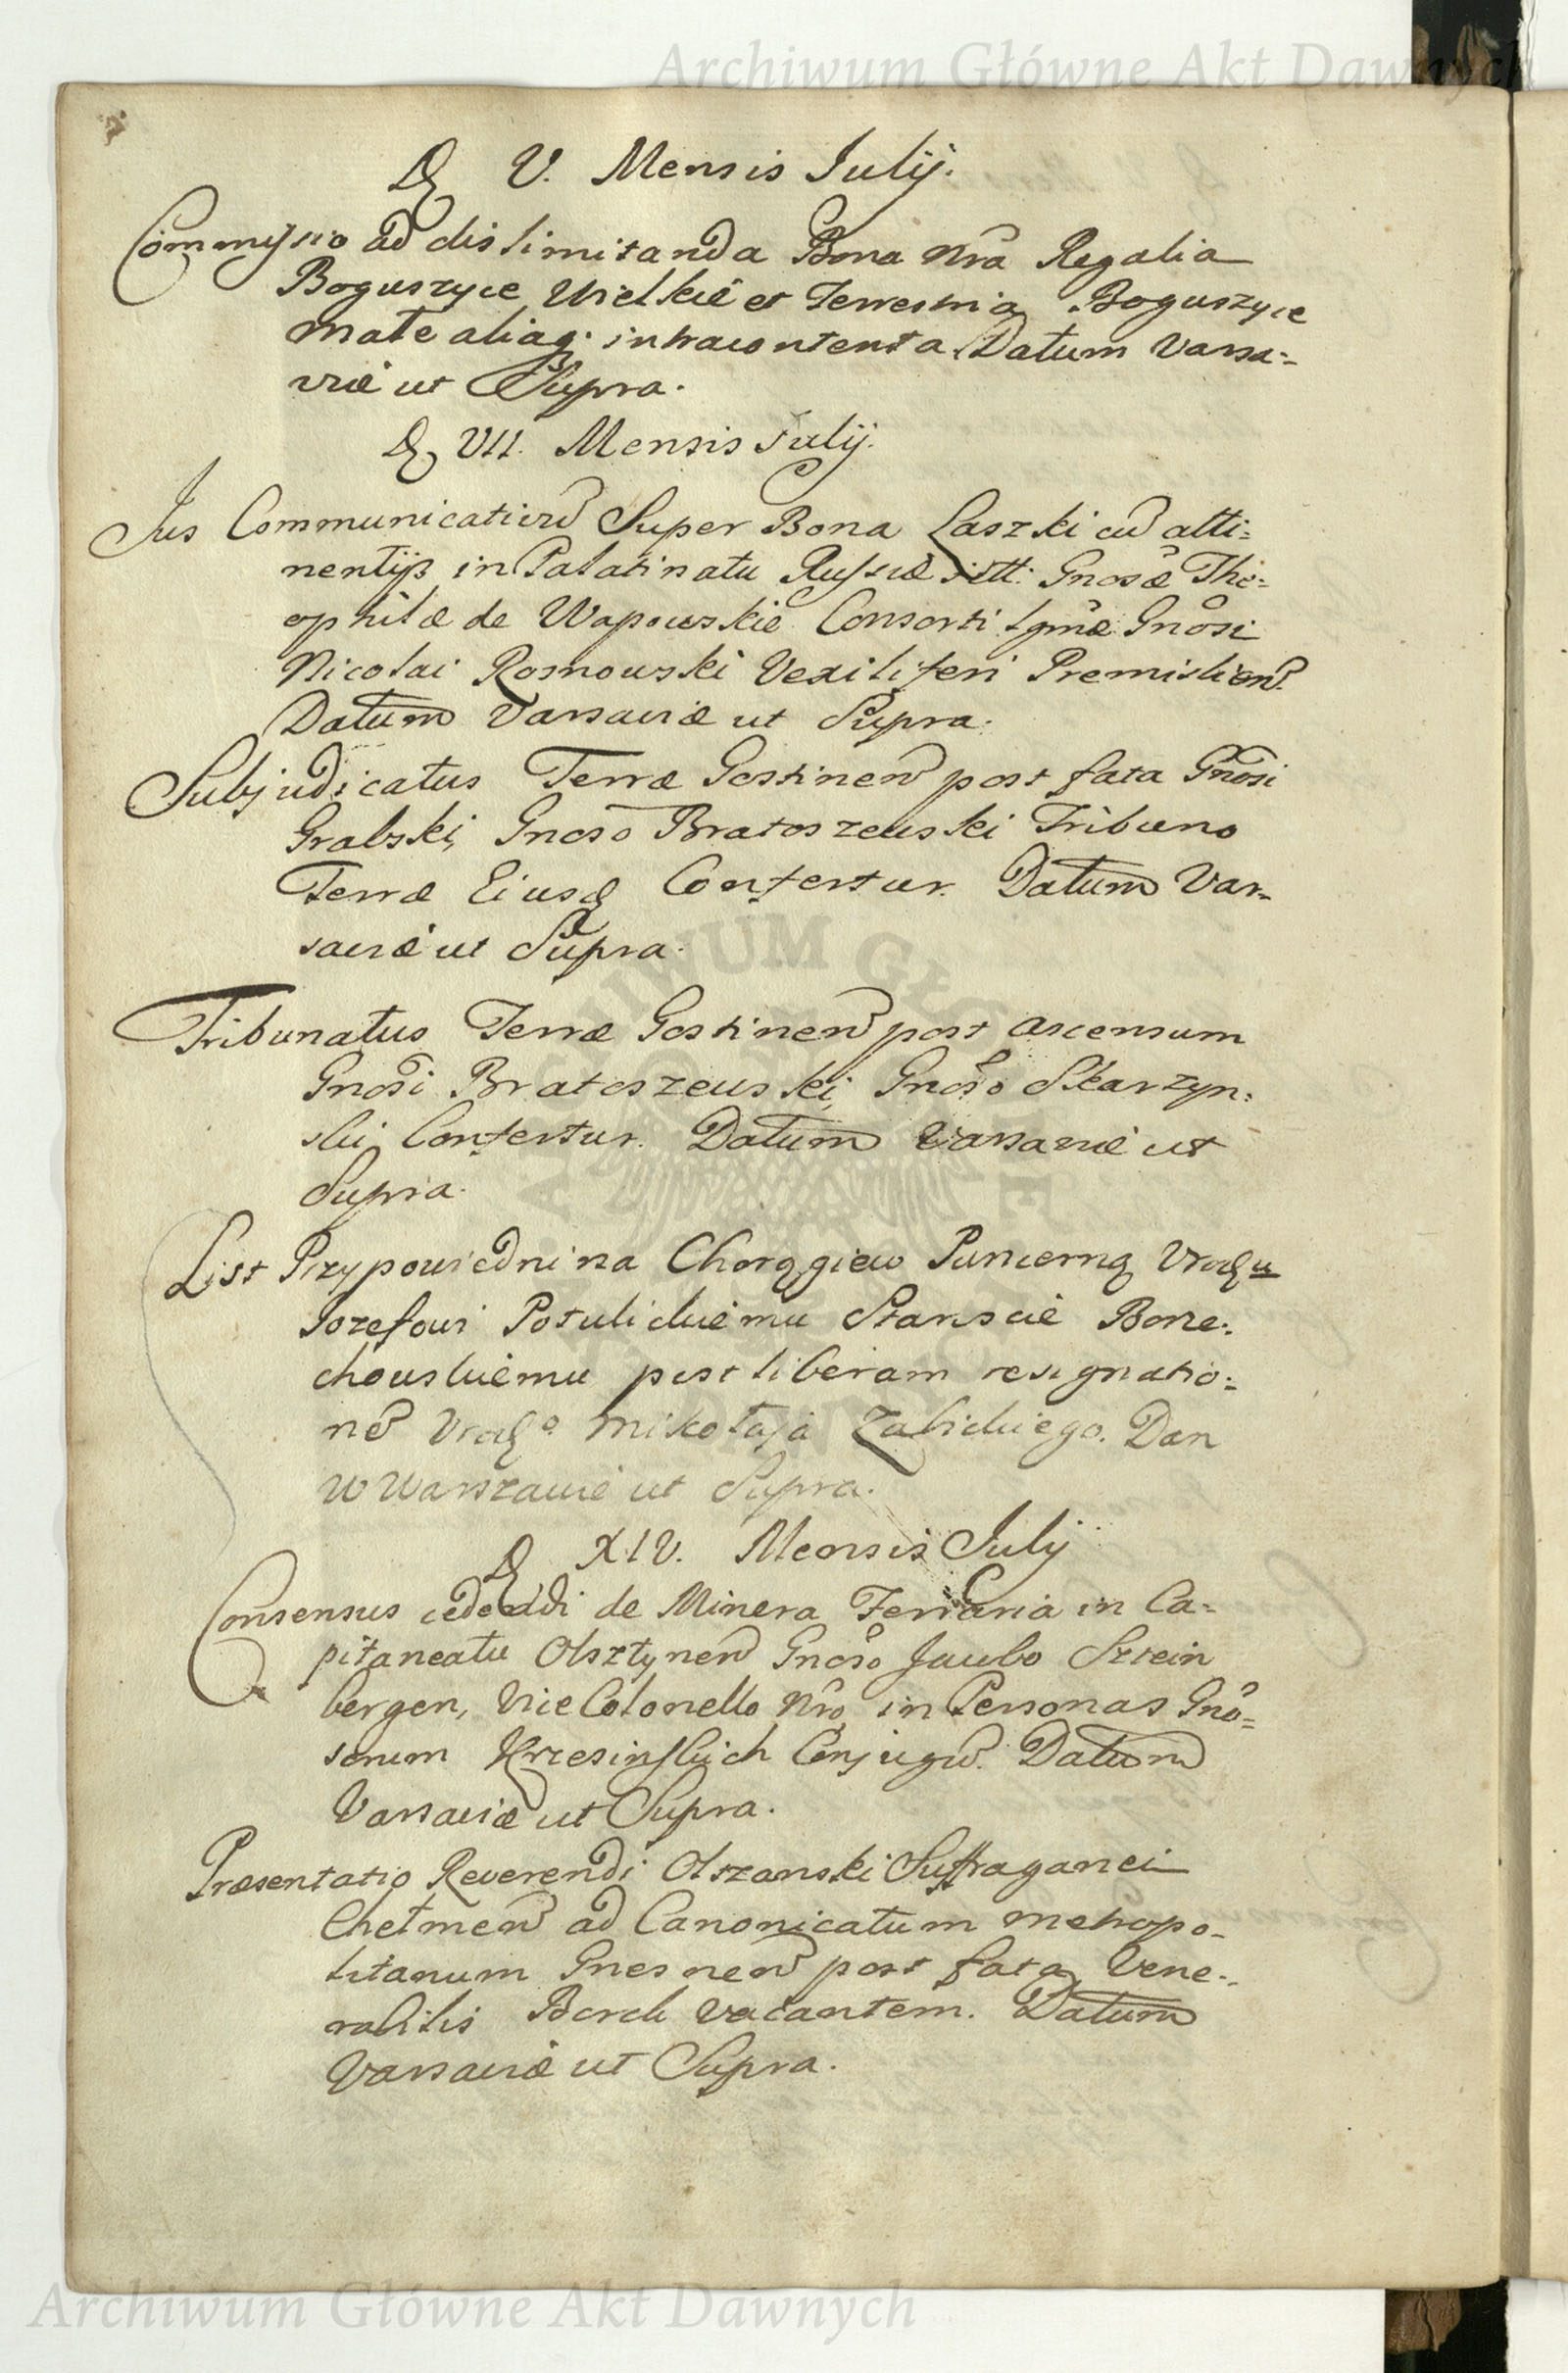 Archiwum Główne Akt Dawnych
D. V. Mensis Julij.
Commissio ad dislimitanda Bona Nra Regalia
Boguszyce Wielkie et Terrestria Boguszyce
Małe aliaq. intracontenta. Datum Varsa-
viæ ut Supra.
D. VII. Mensis Julij.
Jus Communicativũ Super Bona Laszki cũ atti-
nentijs in Palatinatu Russiæ sitt: Gnosæ The-
ophilæ de Wapowskie Consorti Lgmæ Gnosi
Nicolai Rosnowski Vexiliferi Premislien.
Datum Varsaviæ ut Supra.
Subjudicatus Terræ Gostinen post fata Gnosi
Grabski, Gnoso Bratoszewski Tribuno
Terræ Eiusd Confertur. Datum Var-
saviæ ut Supra.
Tribunatus Terræ Gostinen post ascensum
Gnosi Bratoszewski, Gnoso Skarzyn-
ski Confertur. Datum Varsaviæ ut
Supra.
List Przypowiedni na Chorągiew Pancerną Urodzu
Jozefowi Potulickiemu Staroscie Borze-
chowskiemu post liberam resignatio-
nẽ Urodzo Mikołaja Zabickiego. Dan
W Warszawie ut Supra.
D. XIV. Mensis Julij
Consensus cedendi de Minera Ferraria in Ca-
pitaneatu Olsztynen Gnoso Jacubo Sztein
bergen, Vice Colonello Nro in Personas Gno-
sorum Krzesinskich Conjugũ. Datum
Varsaviæ ut Supra.
Præsentatio Reverendi Olszanski Suffraganei
Chełmen ad Canonicatum Metropo-
litanum Gnesnen post fata Vene-
rabilis Borck vacantem. Datum
Varsaviæ ut Supra.
Archiwum Główne Akt Dawnych